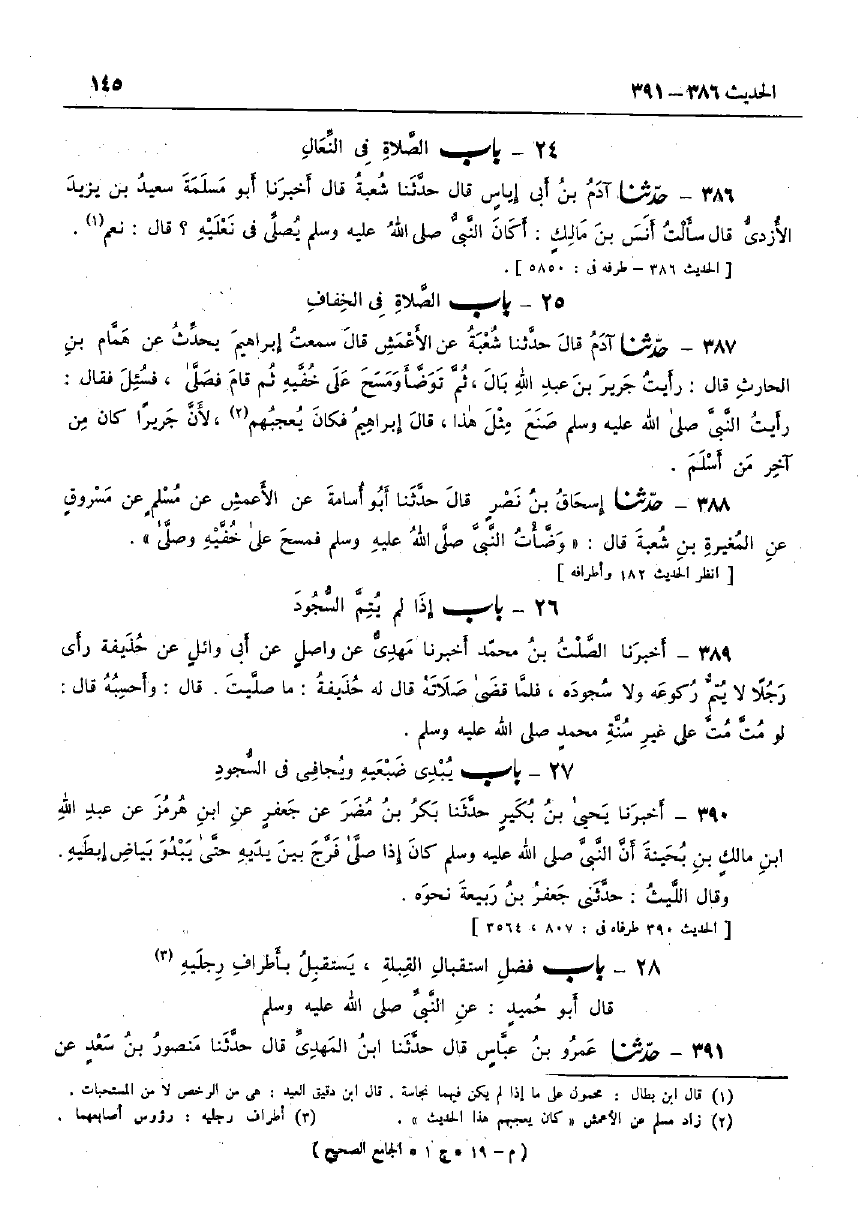 الحديث ٣٨٦ – ٣٩١ ١٤٥
٢٤ – باب الصَّلاةِ فى النِّعَالِ
٣٨٦ – حدّثنا آدَمُ بنُ أبى إياسٍ قال حدَّثَنا شُعبةُ قال أخبرَنا أبو مَسلَمَةَ سعيدُ بن يزيدَ
الأزدىُّ قال سألْتُ أنَسَ بنَ مَالِكٍ : أكانَ النَّبىُّ صلى اللهُ عليه وسلم يُصلِّى فى نَعْلَيْهِ ؟ قال : نعم(١) .
[ الحديث ٣٨٦ – طرفه فى : ٥٨٥٠ ] .
٢٥ – باب الصَّلاةِ فى الخِفافِ
٣٨٧ – حدّثنا آدَمُ قالَ حدَّثنا شُعْبَةُ عن الأعْمَشِ قالَ سمعتُ إبراهيمَ يحدِّثُ عن هَمَّام بنِ
الحارثِ قال : رأيتُ جَريرَ بنَ عبدِ اللهِ بَالَ ، ثُمَّ تَوَضَّأَ وَمَسَحَ عَلَى خُفَّيهِ ثُم قامَ فصَلَّىٰ ، فسُئِلَ فقال :
رأيتُ النَّبىَّ صلىٰ الله عليه وسلم صَنَعَ مِثْلَ هٰذا ، قالَ إبراهيمُ فكانَ يُعجبُهم(٢) ، لأَنَّ جَريرًا كان مِن
آخِرِ مَن أَسْلَمَ .
٣٨٨ – حدّثنا إسحَاقُ بنُ نَصْرٍ قالَ حدَّثَنا أبُو أُسامةَ عن الأعمشِ عن مُسْلمٍ عن مَسْروقٍ
عنِ المُغيرةِ بنِ شُعبةَ قال : « وَضَّأْتُ النَّبىَّ صلَّى اللهُ عليهِ وسلم فمسحَ علىٰ خُفَّيْهِ وصلَّىٰ » .
[ انظر الحديث ١٨٢ وأطرافه ]
٢٦ – باب إذَا لم يُتِمَّ السُّجُودَ
٣٨٩ – أخبرَنا الصَّلْتُ بنُ محمّد أخبرنا مَهدىٌّ عن واصلٍ عن أبى وائلٍ عن حُذَيفة رأى
رَجُلًا لا يُتمُّ رُكوعَه ولا سُجودَه ، فلمَّا قضَىٰ صَلَاتَهُ قال له حُذَيفةُ : ما صلَّيتَ . قال : وأحسِبُهُ قال :
لو مُتَّ مُتَّ على غيرِ سُنَّةِ محمدٍ صلى الله عليه وسلم .
٢٧ – باب يُبْدِى ضَبْعَيهِ ويُجافِى فى السُّجودِ
٣٩٠ – أخبرَنا يَحيىٰ بنُ بُكَيرٍ حدَّثَنا بَكرُ بنُ مُضَرَ عن جَعفرٍ عنِ ابنِ هُرمُزَ عن عبدِ اللهِ
ابنِ مالكٍ بنِ بُحَينةَ أنَّ النَّبىَّ صلى الله عليه وسلم كانَ إذا صلَّىٰ فَرَّجَ بينَ يدَيهِ حتَّىٰ يَبْدُوَ بَياض إبطَيهِ .
وقال اللَّيثُ : حدَّثَنى جَعفرُ بنُ رَبيعةَ نحوَه .
[ الحديث ٣٩٠ طرفاه فى : ٨٠٧ ، ٣٥٦٤ ]
٢٨ – باب فضلِ استقبالِ القِبلةِ ، يَستقبِلُ بأطرافِ رِجلَيهِ (٣)
قال أبو حُميدٍ : عنِ النَّبىِّ صلى الله عليه وسلم
٣٩١ – حدّثنا عَمرُو بنُ عبَّاسٍ قال حدَّثَنا ابنُ المَهدِىِّ قال حدَّثَنا مَنصورُ بنُ سَعْدٍ عن
(١) قال ابن بطال : محمول على ما إذا لم يكن فيهما نجاسة . قال ابن دقيق العيد : هى من الرخص لا من المستحبات .
(٢) زاد مسلم عن الأعمش « كان يعجبهم هذا الحديث » . (٣) أطراف رجليه : رؤوس أصابعهما .
( م – ١٩ • ج ١ • الجامع الصحيح )